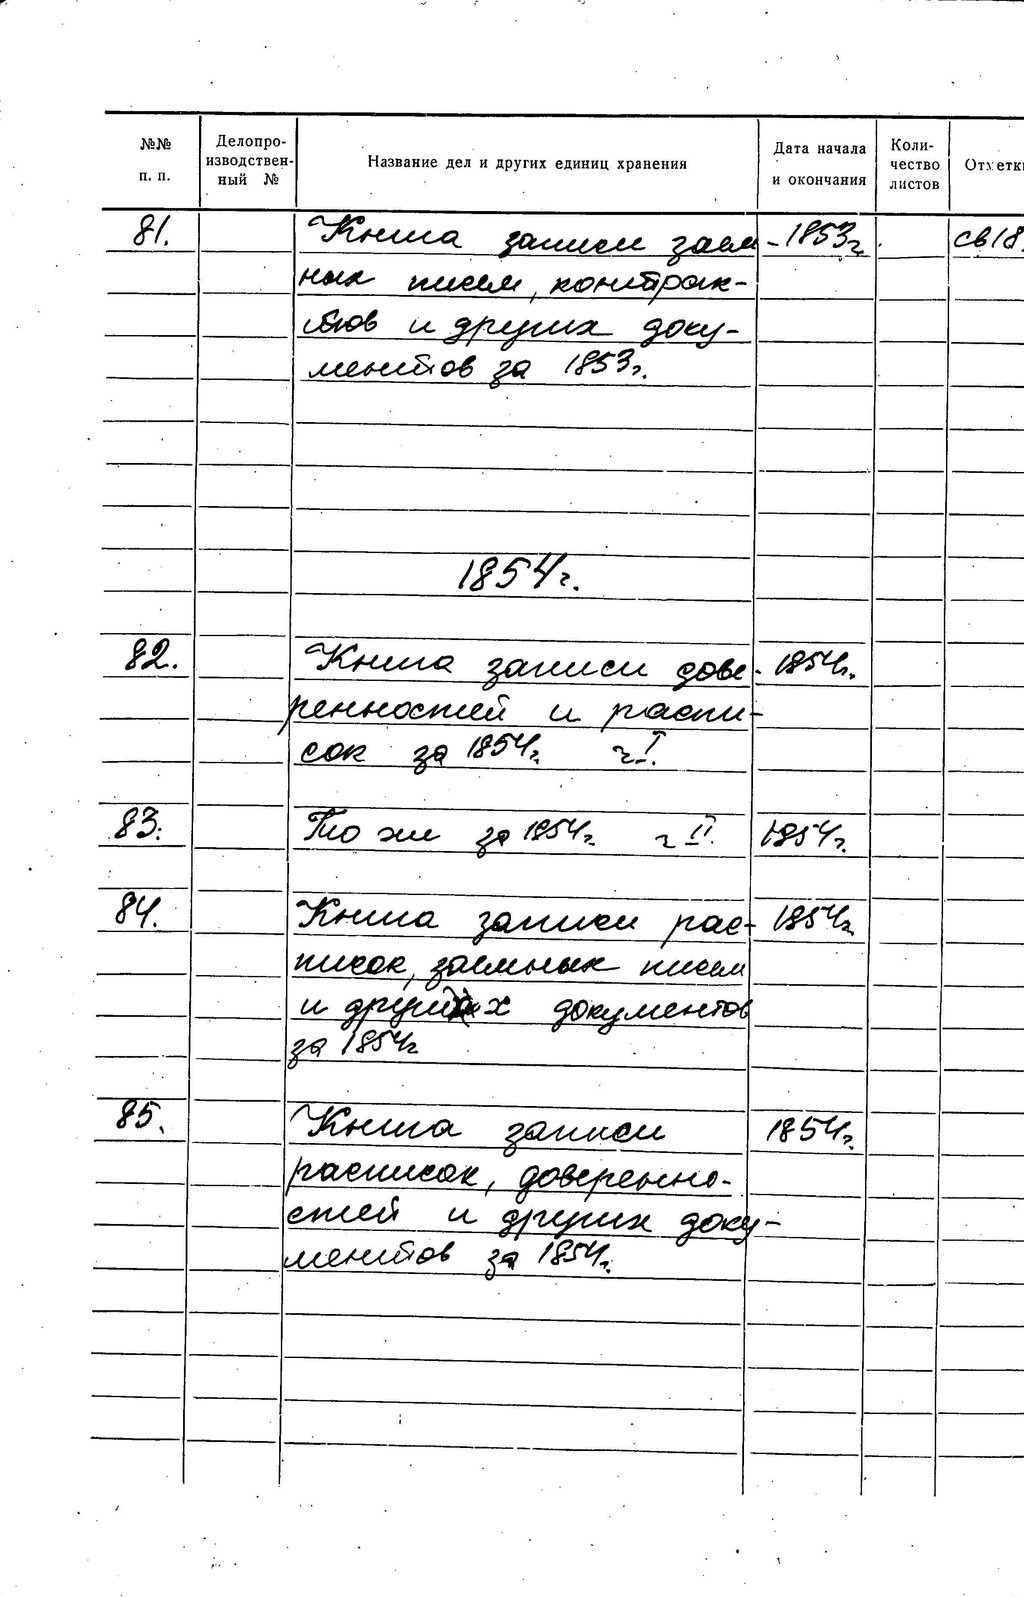 №№ п. п. Делопро-изводствен-ный № Название дел и других единиц хранения Дата начала и окончания Коли-чество листов Отметки
81. Книга записи заем- 1853г. св18.
ных писем, контрак-
тов и других доку-
ментов за 1853г.
1854г.
82. Книга записи дове- 1854г.
ренностей и распи-
сок за 1854г. ч I.
83. То же за 1854г. ч II. 1854г.
84. Книга записи рас- 1854г.
писок, заемных писем
и других документов
за 1854г
85. Книга записи 1854г.
расписок, доверенно-
стей и других доку-
ментов за 1854г.